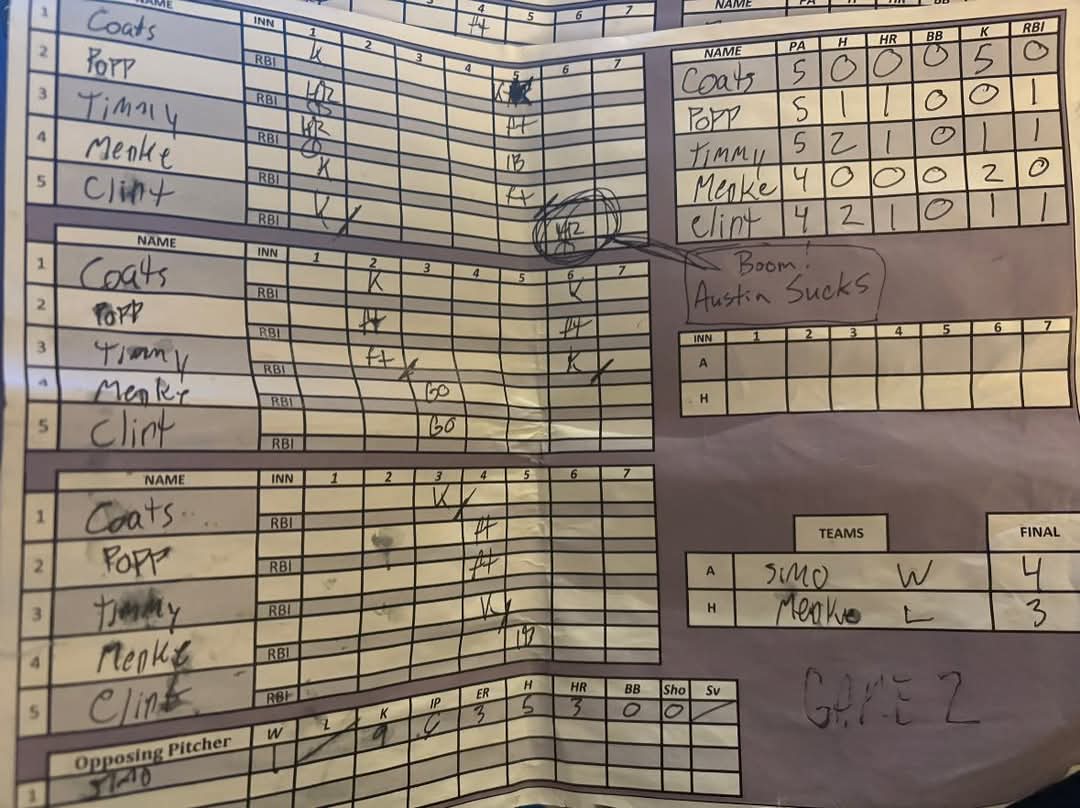 4 5 6 7
NAME INN 1 2 3 4 5 6 7
1 Coats K
RBI
2 Popp HR
RBI
3 Timmy HR
RBI
4 Menke K 1B
RBI
5 Clint K HR
RBI
NAME INN 1 2 3 4 5 6 7
1 Coats K K
RBI
2 Popp
RBI
3 Timmy K
RBI
4 Menke GO
RBI
5 Clint GO
RBI
NAME INN 1 2 3 4 5 6 7
1 Coats K
RBI
2 Popp
RBI
3 Timmy K
RBI
4 Menke 1B
RBI
5 Clint
RBI
Opposing Pitcher W L K IP ER H HR BB Sho Sv
1 SIMO 1 9 6 3 5 3 0 0
NAME PA H HR BB K RBI
Coats 5 0 0 0 5 0
Popp 5 1 1 0 0 1
Timmy 5 2 1 0 1 1
Menke 4 0 0 0 2 0
Clint 4 2 1 0 1 1
Boom!
Austin Sucks
INN 1 2 3 4 5 6 7
A
H
TEAMS FINAL
A SIMO W 4
H Menke L 3
GAME 2